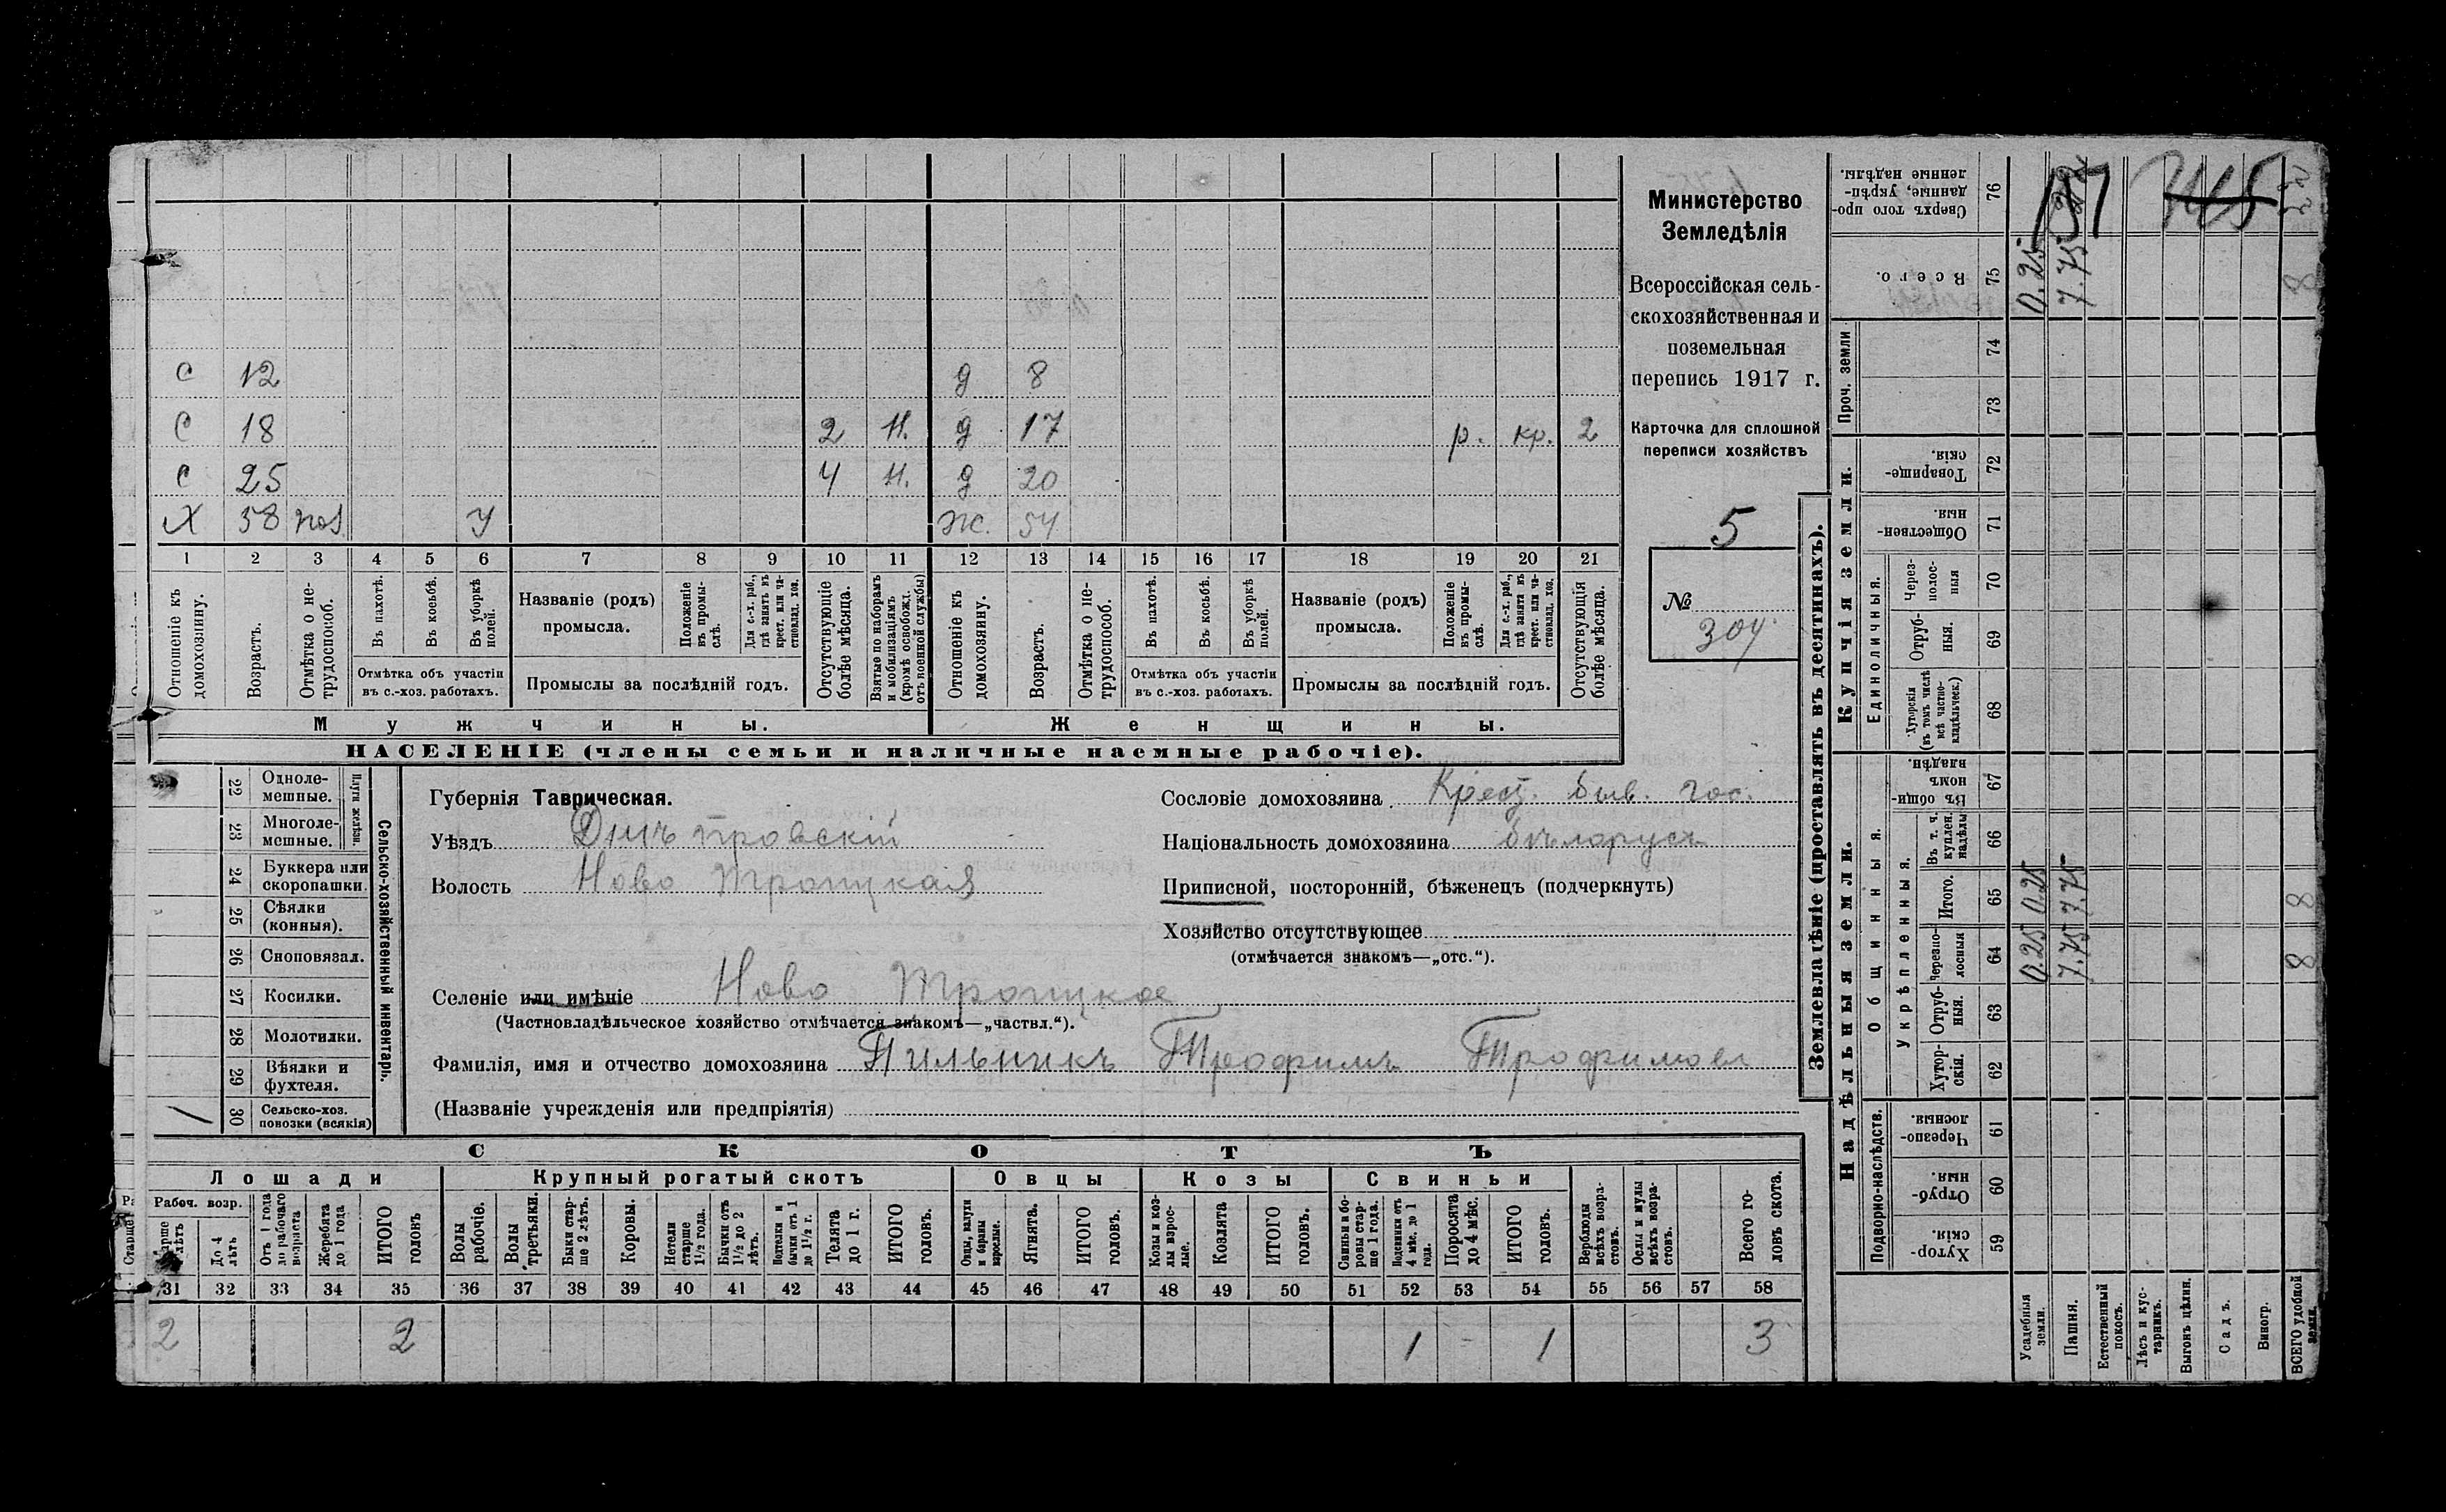 С 12 д 8
С 18 2 Н. д 17 р. кр. 2
С 25 4 Н. д 20
Х 58 У Ж. 54
1 2 3 4 5 6 7 8 9 10 11 12 13 14 15 16 17 18 19 20 21
Отношеніе къ домохозяину.
Возрастъ.
Отмѣтка о не-трудоспособ.
Въ пахотѣ.
Въ косьбѣ.
Въ уборкѣ полей.
Отмѣтка объ участіи
въ с.-хоз. работахъ.
Названіе (родъ)
промысла.
Положеніе въ промы-слѣ.
Для с.-х. раб., гдѣ занятъ въ крест. или ча-стновлад. хоз.
Промыслы за послѣдній годъ.
Отсутствующіе болѣе мѣсяца.
Взятые по наборамъ и мобилизаціямъ (кромѣ освобожд. отъ военной службы)
Отношеніе къ домохозяину.
Возрастъ.
Отмѣтка о не-трудоспособ.
Въ пахотѣ.
Въ косьбѣ.
Въ уборкѣ полей.
Отмѣтка объ участіи
въ с.-хоз. работахъ.
Названіе (родъ)
промысла.
Положеніе въ промы-слѣ.
Для с.-х. раб., гдѣ занята въ крест. или ча-стновлад. хоз.
Промыслы за послѣдній годъ.
Отсутствующія болѣе мѣсяца.
Мужчины. Женщины.
НАСЕЛЕНІЕ (члены семьи и наличные наемные рабочіе).
Министерство
Земледѣлія
Всероссійская сель-
скохозяйственная и
поземельная
перепись 1917 г.
Карточка для сплошной
переписи хозяйствъ
5
№
304
22 Одноле-мешные.
23 Многоле-мешные.
Плуги желѣзн.
24 Буккера или скоропашки.
25 Сѣялки (конныя).
26 Сноповязал.
27 Косилки.
28 Молотилки.
29 Вѣялки и фухтеля.
/ 30 Сельско-хоз. повозки (всякія)
Сельско-хозяйственный инвентарь.
Губернія Таврическая.
Уѣздъ Днѣпровскій
Волость Ново Троицкая
Селеніе или имѣніе Ново Троицкое
(Частновладѣльческое хозяйство отмѣчается знакомъ—„частвл.“).
Фамилія, имя и отчество домохозяина Пильникъ Трофимъ Трофимов
(Названіе учрежденія или предпріятія)
Сословіе домохозяина Крест. быв. гос.
Національность домохозяина бѣларусъ
Приписной, посторонній, бѣженецъ (подчеркнуть)
Хозяйство отсутствующее
(отмѣчается знакомъ—„отс.“).
СКОТЪ
Лошади Крупный рогатый скотъ Овцы Козы Свиньи
Рабоч. возр.
До 4 лѣтъ
Отъ 1 года до рабочаго возраста
Жеребята до 1 года
ИТОГО головъ
Волы рабочіе.
Волы третьяки.
Быки стар-ше 2 лѣтъ.
Коровы.
Нетели старше 1½ года.
Бычки отъ 1½ до 2 лѣтъ.
Подтелки и бычки отъ 1 до 1½ г.
Телята до 1 г.
ИТОГО головъ.
Овцы, валухи и бараны взрослые.
Ягнята.
ИТОГО головъ.
Козы и коз-лы взрос-лые.
Козлята
ИТОГО головъ.
Свиньи и бо-ровы стар-ше 1 года.
Подсвинки отъ 4 мѣс. до 1 года.
Поросята до 4 мѣс.
ИТОГО головъ.
Верблюды всѣхъ возра-стовъ.
Ослы и мулы всѣхъ возра-стовъ.
Всего го-ловъ скота.
31 32 33 34 35 36 37 38 39 40 41 42 43 44 45 46 47 48 49 50 51 52 53 54 55 56 57 58
2 2 1 - 1 3
Землевладѣніе (проставлять въ десятинахъ).
Надѣльныя земли. Купчія земли. Проч. земли
Подворно-наслѣдств.
Общинныя.
Укрѣпленныя.
Единоличныя.
Хутор-скія 59
Отруб-ныя. 60
Черезпо-лосныя 61
Хутор-скія. 62
Отруб-ныя. 63
Черезпо-лосныя 64 0.25 7.75 8
Итого. 65 0.25 7.75 8
Въ т. ч. куплен. надѣлы 66
Въ общин-номъ владѣн. 67
Хуторскія (въ томъ числѣ всѣ частно-владѣльческ.) 68
Отруб-ныя. 69
Через-полос-ныя 70
Обществен-ныя. 71
Товарище-скія. 72
73
74
Всего. 75 0.25 7.75 8
Сверхъ того про-данные, укрѣп-ленные надѣлы. 76
Усадебныя земли.
Пашня.
Естественный покосъ.
Лѣсъ и кус-тарникъ.
Выгонъ цѣлин.
Садъ.
Виногр.
ВСЕГО удобной земли.